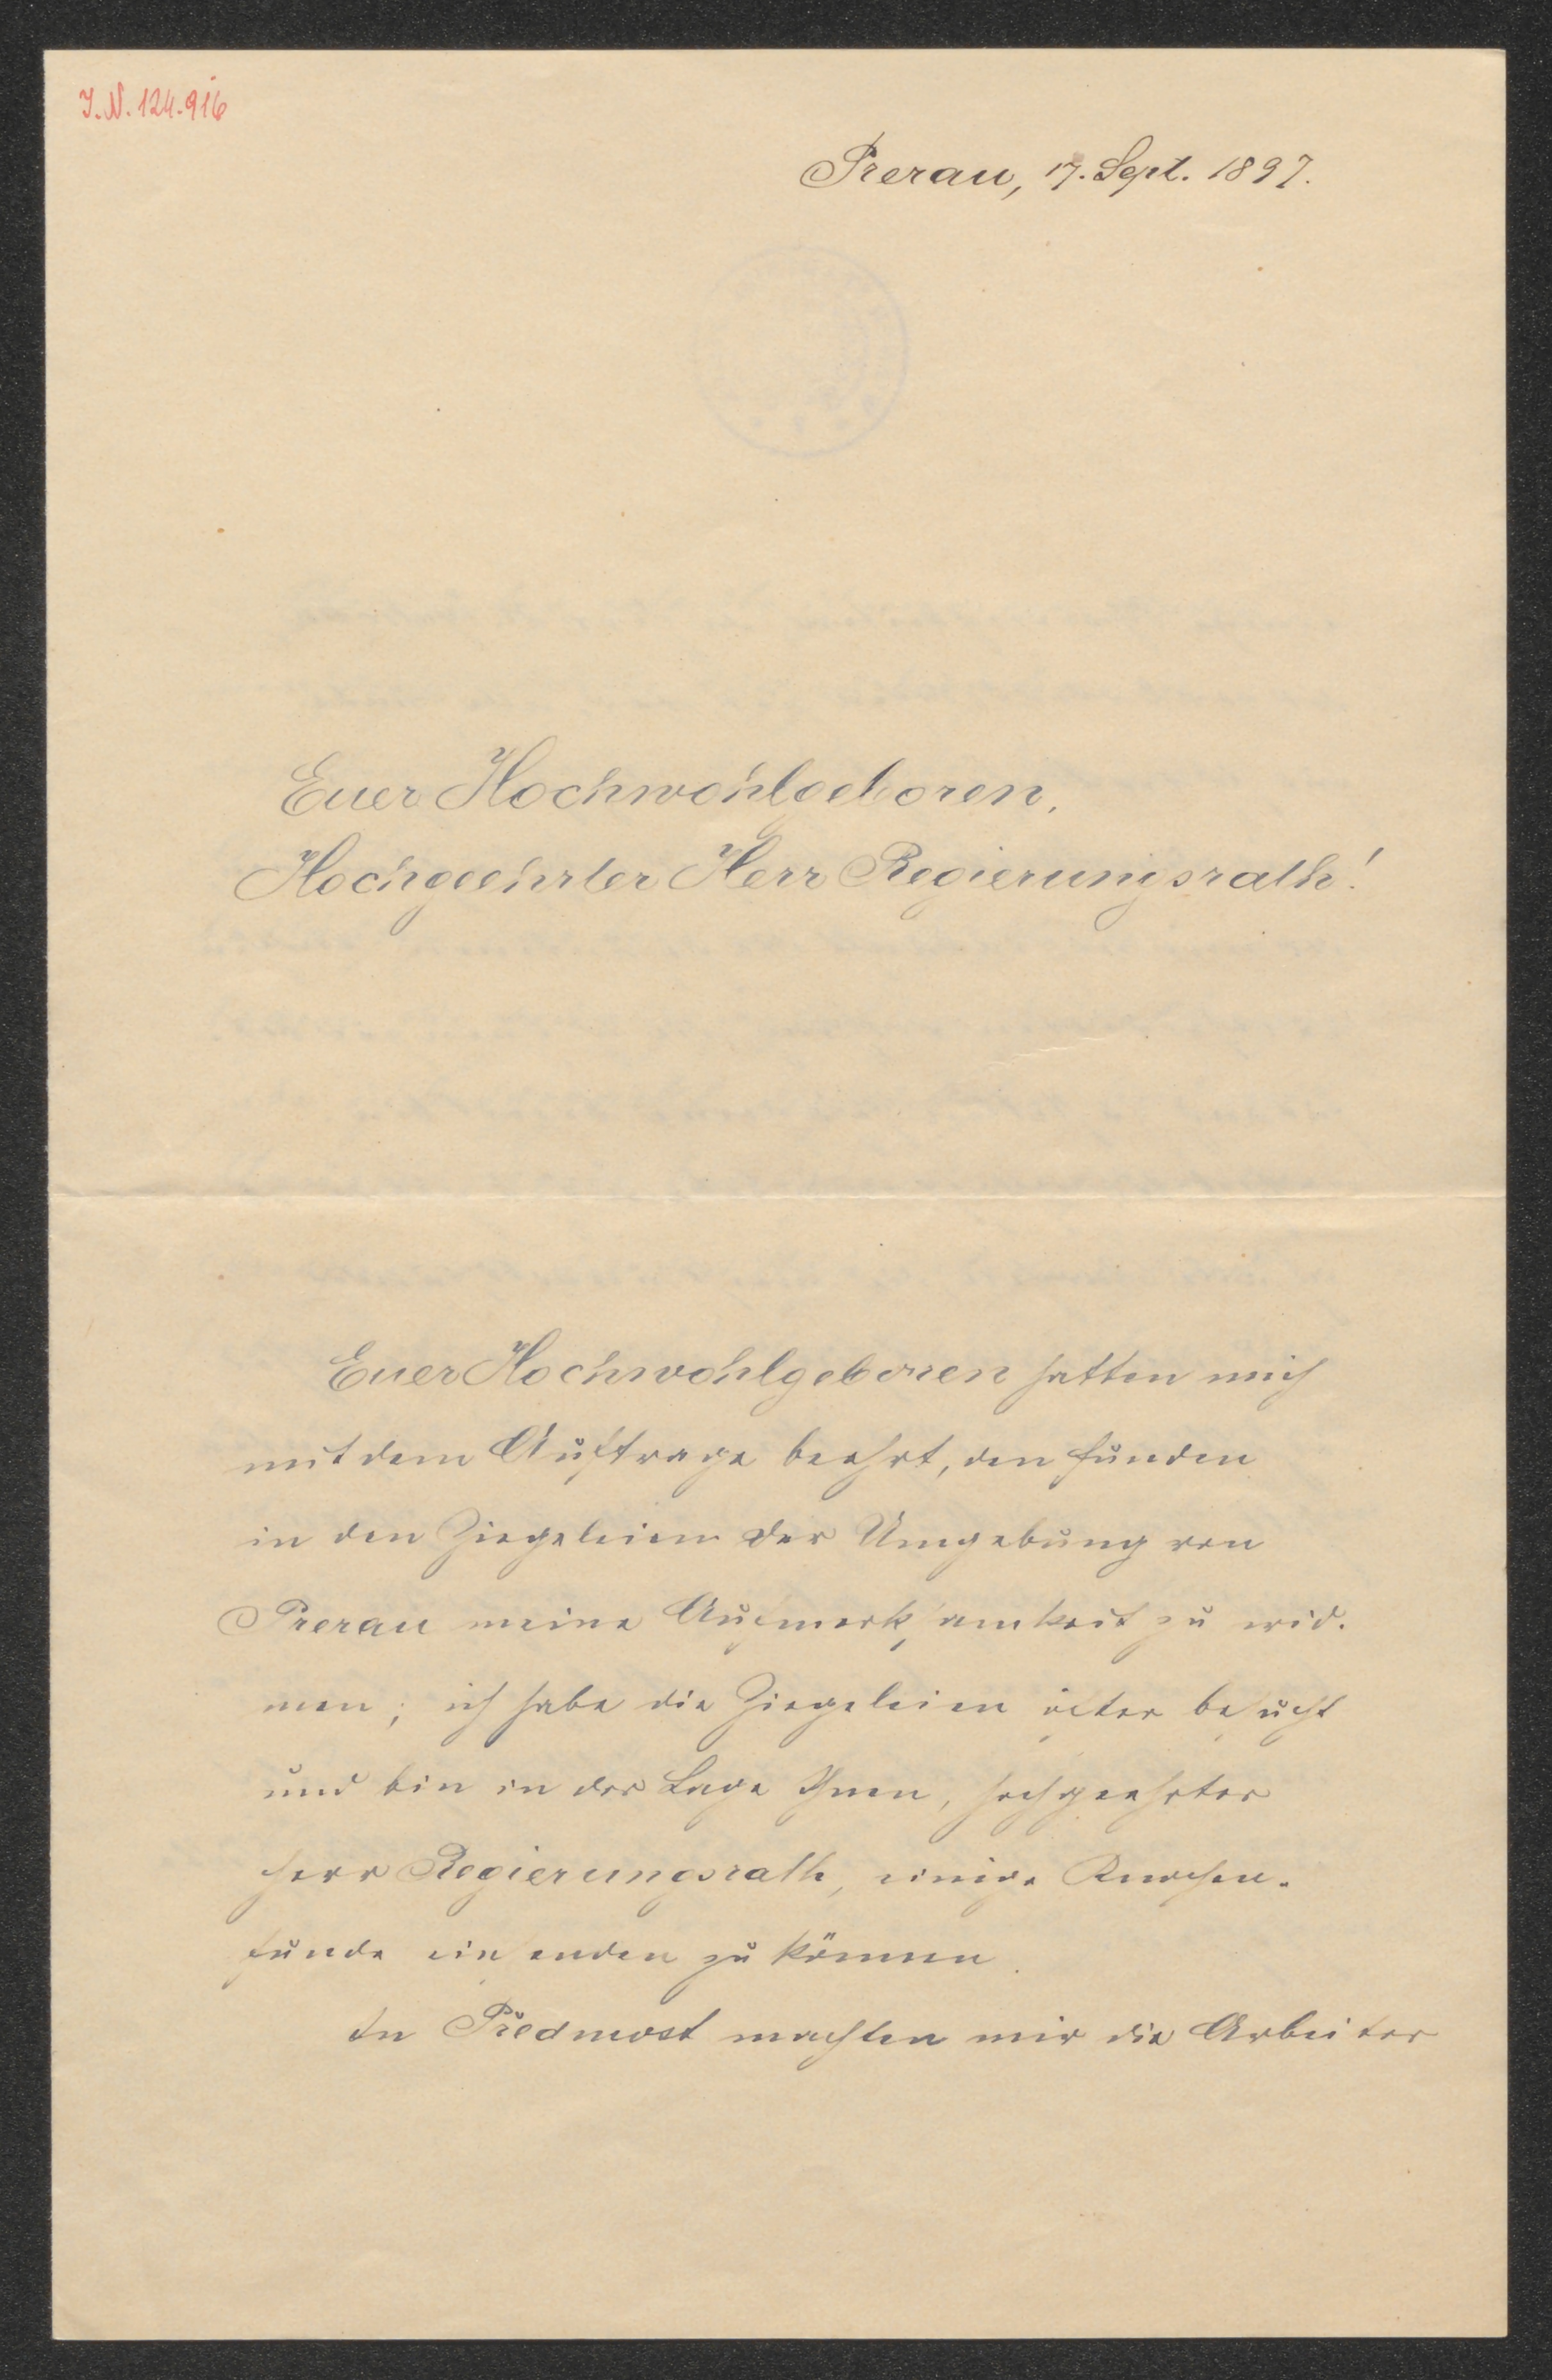 I.N. 124.916
Prerau, 17. Sept. 1897.
Euer Hochwohlgeboren,
Hochgeehrter Herr Regierungsrath!
Euer Hochwohlgeboren hatten mich
mit dem Auftrage beehrt, den Funden
in den Ziegeleien der Umgebung von
Prerau meine Aufmerksamkeit zu wid-
men; ich habe die Ziegeleien öfter besucht
und bin in der Lage Ihnen, hochgeehrter
Herr Regierungsrath, einige Knochen-
funde einsenden zu können.
In Předmost machten mir die Arbeiter